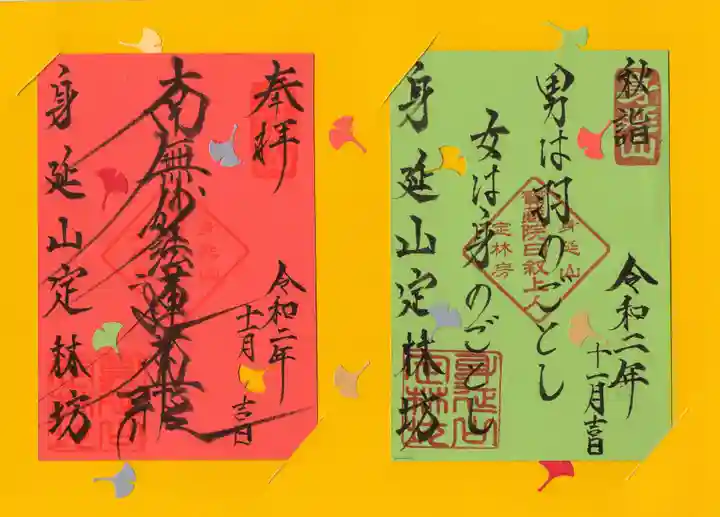 秋詣
男は羽のごとし
女は身のごとし
令和二年
十一月吉日
身延山定林坊
奉拝
南無妙法蓮華経
令和二年
十一月
吉日
身延山定林坊